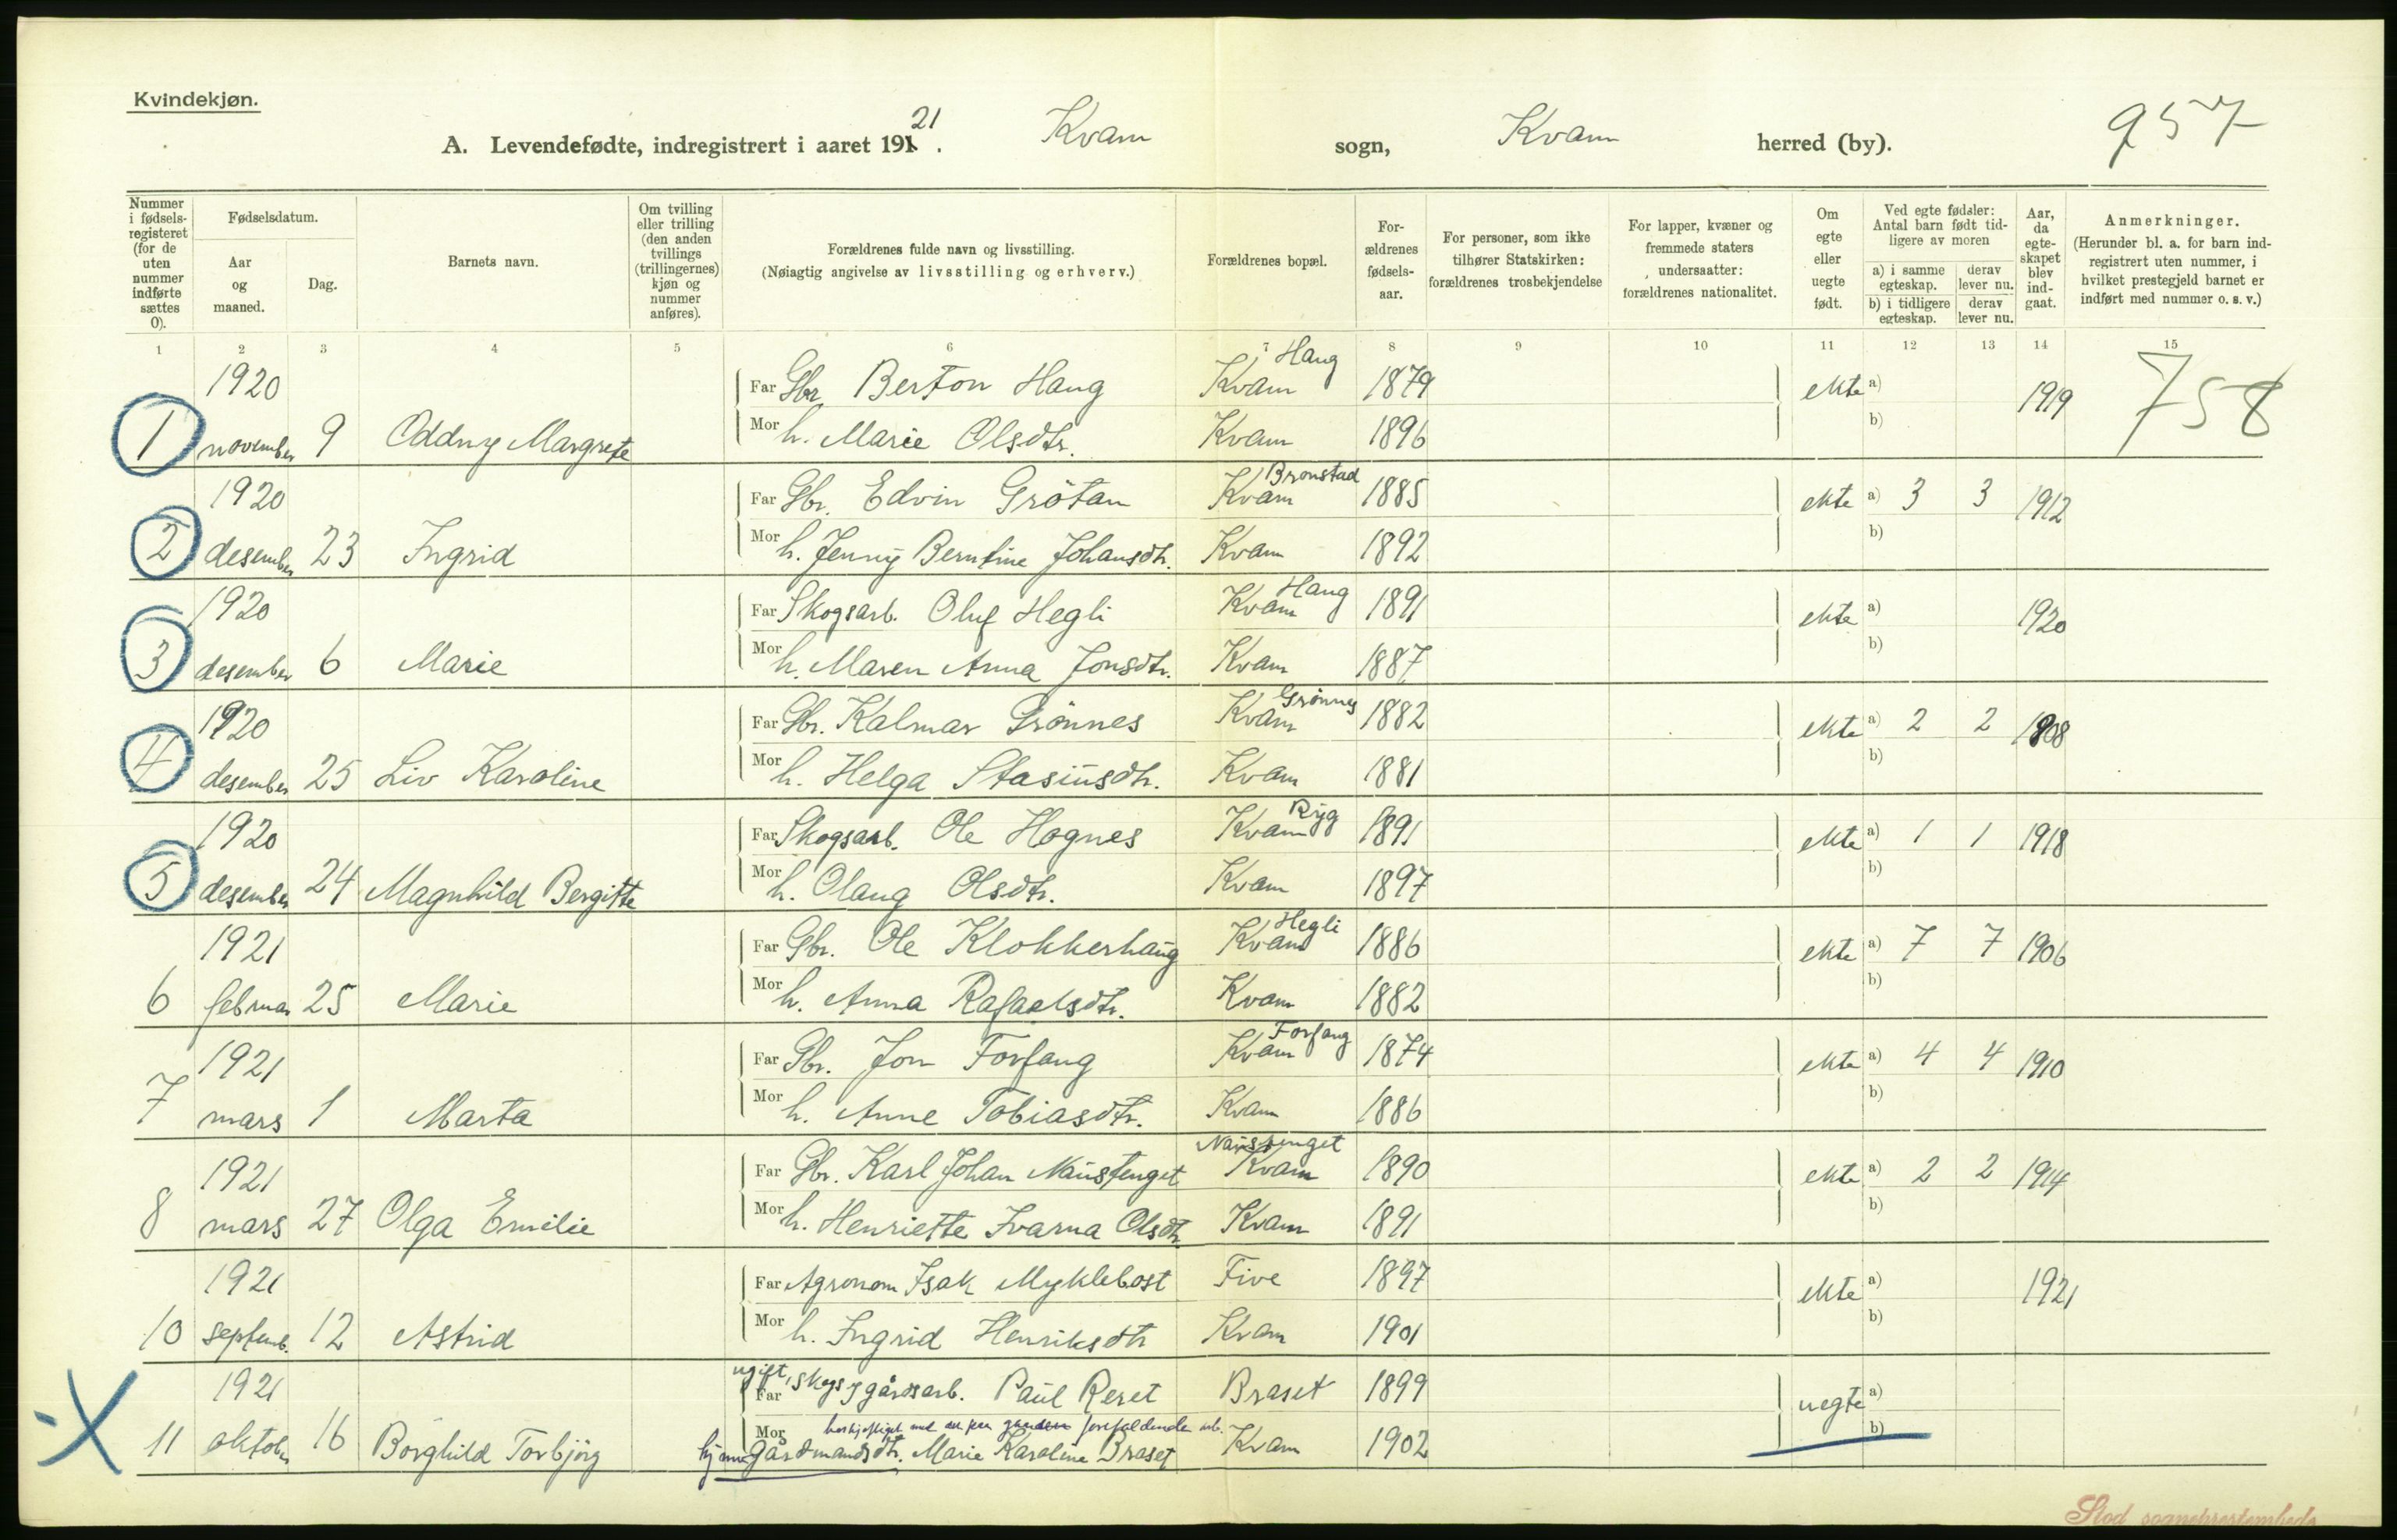 Kvindekjøn.
A. Levendefødte, indregistrert i aaret 191 21. Kvam sogn, Kvam herred (by). 957
Nummer i fødselsregisteret (for de uten nummer indførte sættes 0).
Fødselsdatum.
Aar og maaned.
Dag.
Barnets navn.
Om tvilling eller trilling (den anden tvillings (trillingernes) kjøn og nummer anføres).
Forældrenes fulde navn og livsstilling.
(Nøiagtig angivelse av livsstilling og erhverv.)
Forældrenes bopæl.
Forældrenes fødselsaar.
For personer, som ikke tilhører Statskirken: forældrenes trosbekjendelse
For lapper, kvæner og fremmede staters undersaatter: forældrenes nationalitet.
Om egte eller uegte født.
Ved egte fødsler: Antal barn født tidligere av moren
a) i samme egteskap. derav lever nu.
b) i tidligere egteskap. derav lever nu.
Aar, da egteskapet blev indgaat.
Anmerkninger.
(Herunder bl. a. for barn indregistrert uten nummer, i hvilket prestegjeld barnet er indført med nummer o. s. v.)
1 2 3 4 5 6 7 8 9 10 11 12 13 14 15
1920 Far Gbr. Berton Haug Kvam Haug 1879 ekte a) 1919 758
1 november 9 Oddny Margrete Mor h. Marie Olsdtr. Kvam 1896 b)
1920 Far Gbr. Edvin Grötan Kvam Bronstad 1885 ekte a) 3 3 1912
2 desember 23 Ingrid Mor h. Jenny Berntine Johansdtr. Kvam 1892 b)
1920 Far Skogsarb. Oluf Hegli Kvam Haug 1891 ekte a) 1920
3 desember 6 Marie Mor h. Maren Anna Jonsdtr. Kvam 1887 b)
1920 Far Gbr. Kalmar Grönnes Kvam Grönnes 1882 ekte a) 2 2 1908
4 desember 25 Liv Karoline Mor h. Helga Stasiusdtr. Kvam 1881 b)
1920 Far Skogsarb. Ole Hognes Kvam Ryg 1891 ekte a) 1 1 1918
5 desember 24 Magnhild Bergitte Mor h. Olaug Olsdtr. Kvam 1897 b)
1921 Far Gbr. Ole Klokkerhaug Kvam Hegli 1886 ekte a) 7 7 1906
6 februar 25 Marie Mor h. Anna Rafaelsdtr. Kvam 1882 b)
1921 Far Gbr. Jon Forfang Kvam Forfang 1874 ekte a) 4 4 1910
7 mars 1 Marta Mor h. Anne Tobiasdtr. Kvam 1886 b)
1921 Far Gbr. Karl Johan Naustenget Naustenget Kvam 1890 ekte a) 2 2 1914
8 mars 27 Olga Emilie Mor h. Henriette Ivarna Olsdtr. Kvam 1891 b)
1921 Far Agronom Isak Myklebost Five 1897 ekte a) 1921
10 septemb. 12 Astrid Mor h. Ingrid Henriksdtr Kvam 1901 b)
1921 Far ugift, skogs g gårdsarb. Paul Reset Braset 1899 uegte a)
11 oktober 16 Borghild Torbjörg Mor gårdmandsdtr. Marie Karoline Braset Kvam 1902 b)
Stod sogneprestembede